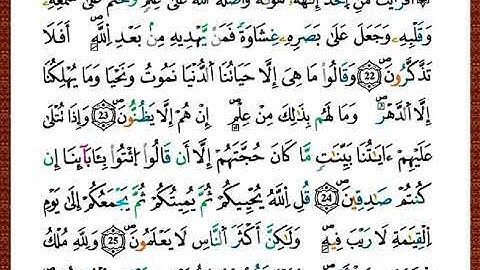 أَفَرَءَيْتَ مَنِ ٱتَّخَذَ إِلَٰهَهُۥ هَوَىٰهُ وَأَضَلَّهُ ٱللَّهُ عَلَىٰ عِلْمٍ وَخَتَمَ عَلَىٰ سَمْعِهِۦ
وَقَلْبِهِۦ وَجَعَلَ عَلَىٰ بَصَرِهِۦ غِشَٰوَةً فَمَن يَهْدِيهِ مِنۢ بَعْدِ ٱللَّهِ أَفَلَا
تَذَكَّرُونَ 22 وَقَالُوا۟ مَا هِىَ إِلَّا حَيَاتُنَا ٱلدُّنْيَا نَمُوتُ وَنَحْيَا وَمَا يُهْلِكُنَآ
إِلَّا ٱلدَّهْرُ وَمَا لَهُم بِذَٰلِكَ مِنْ عِلْمٍ إِنْ هُمْ إِلَّا يَظُنُّونَ 23 وَإِذَا تُتْلَىٰ
عَلَيْهِمْ ءَايَٰتُنَا بَيِّنَٰتٍ مَّا كَانَ حُجَّتَهُمْ إِلَّآ أَن قَالُوا۟ ٱئْتُوا۟ بِـَٔابَآئِنَآ إِن
كُنتُمْ صَٰدِقِينَ 24 قُلِ ٱللَّهُ يُحْيِيكُمْ ثُمَّ يُمِيتُكُمْ ثُمَّ يَجْمَعُكُمْ إِلَىٰ يَوْمِ
ٱلْقِيَٰمَةِ لَا رَيْبَ فِيهِ وَلَٰكِنَّ أَكْثَرَ ٱلنَّاسِ لَا يَعْلَمُونَ 25 وَلِلَّهِ مُلْكُ